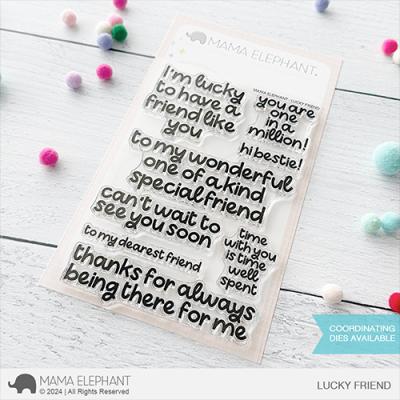 MAMA ELEPHANT.
MAMA ELEPHANT | LUCKY FRIEND
I'm lucky
to have a
friend like
you
you are
one
in a
million!
hi bestie!
to my wonderful
one of a kind
special friend
can't wait to
see you soon
to my dearest friend
time
with you
is time
well
spent
thanks for always
being there for me
COORDINATING
DIES AVAILABLE
MAMA ELEPHANT
© 2024 | All Rights Reserved
LUCKY FRIEND